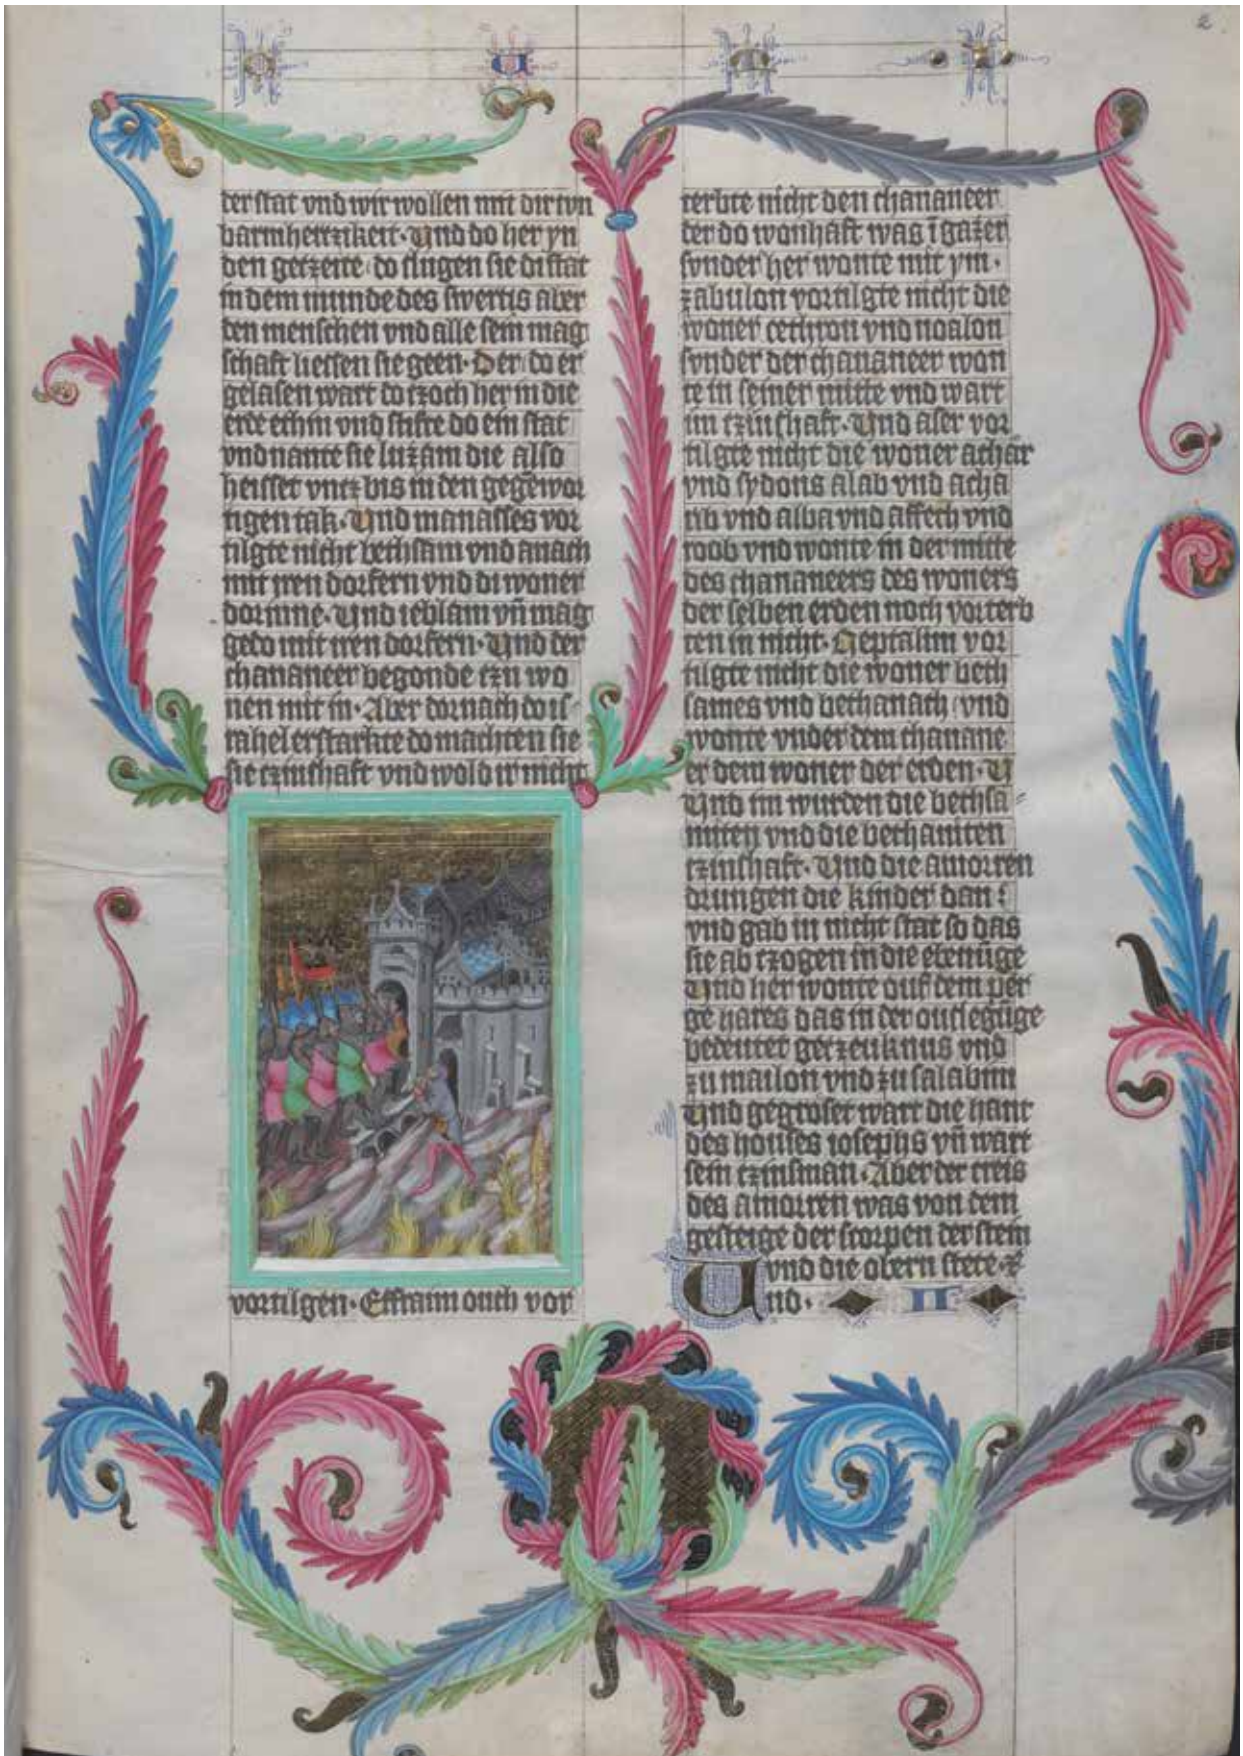 2
der stat vnd wir wollen mit dir tun
barmhertzikeit· Und do her yn
den getzeite do slugen sie di stat
in dem munde des swertis aber
den menschen vnd alle sein mag
schaft liessen sie geen· Der do er
gelasen wart do tzoch her in die
erde ethim vnd stifte do ein stat
vnd nante sie luzam die also
heisset vntz bis in den gegēwor
tigen tak· Und manasses vor
tilgte nicht bethsam vnd anach
mit iren dorfern vnd di woner
dorinne· Und ieblam vn̄ mag
gedo mit iren dorfern· Und der
chananeer begonde tzu wo
nen mit in· Aber dornach do is-
rahel erstarkte do machten sie
sie tzinshaft vnd wold ir nicht
vortilgen· Effraim ouch vor
terbte nicht den chananeer
der do wonhaft was ī gazer
sunder her wonte mit ym·
zabulon vortilgte nicht die
woner cethron vnd noalon
sunder der chananeer won
te in seiner mitte vnd wart
im tzinshaft· Und aser vor
tilgte nicht die woner achar
vnd sydons alab vnd acha
rib vnd alba vnd affech vnd
roob vnd wonte in der mitte
des chananeers des woners
der selben erden noch vorterb
ten in nicht· Neptalim vor
tilgte nicht die woner beth
sames vnd bethanach vnd
wonte vnder dem chanane
er dem woner der erden· U
Und im wurden die bethsa-
miten vnd die bethaniten
tzinshaft· Und die amorren
drungen die kinder dan:
vnd gab in nicht stat so das
sie ab tzogen in die ebenūge
Und her wonte ouf dem per
ge hares das in der ouslegūge
bedeutet getzeuknus vnd
zu mailon vnd zu salabim
Und gegroset wart die hant
des houses iosephs vn̄ wart
sein tzinsman· Aber der treis
des amorren was von dem
gesteige der scorpen der stein
vnd die obern stete·
Und· II